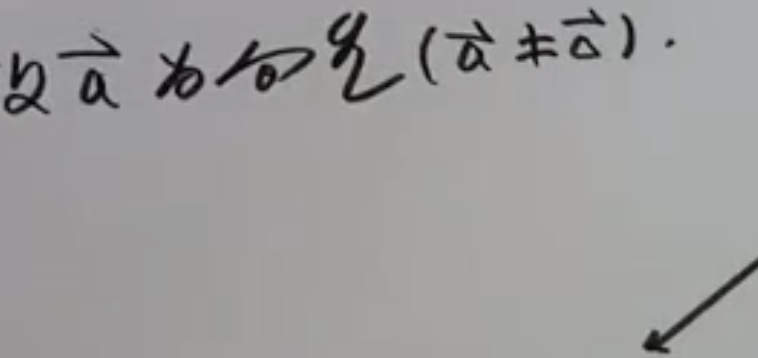 设 \vec{a} 为向量 (\vec{a} ≠ \vec{0}).